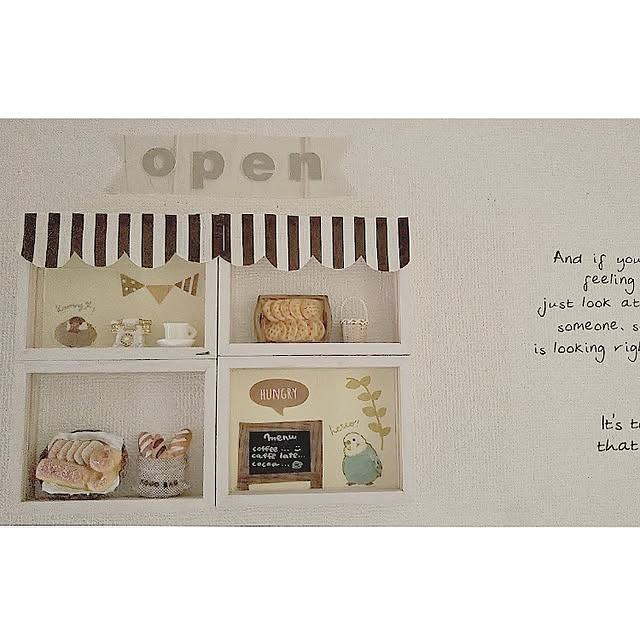 open
HUNGRY
menu
coffee...
caffe late...
cocoa...
hello!!
And if you
feeling
just look at
someone. s
is looking rig
It's t
that